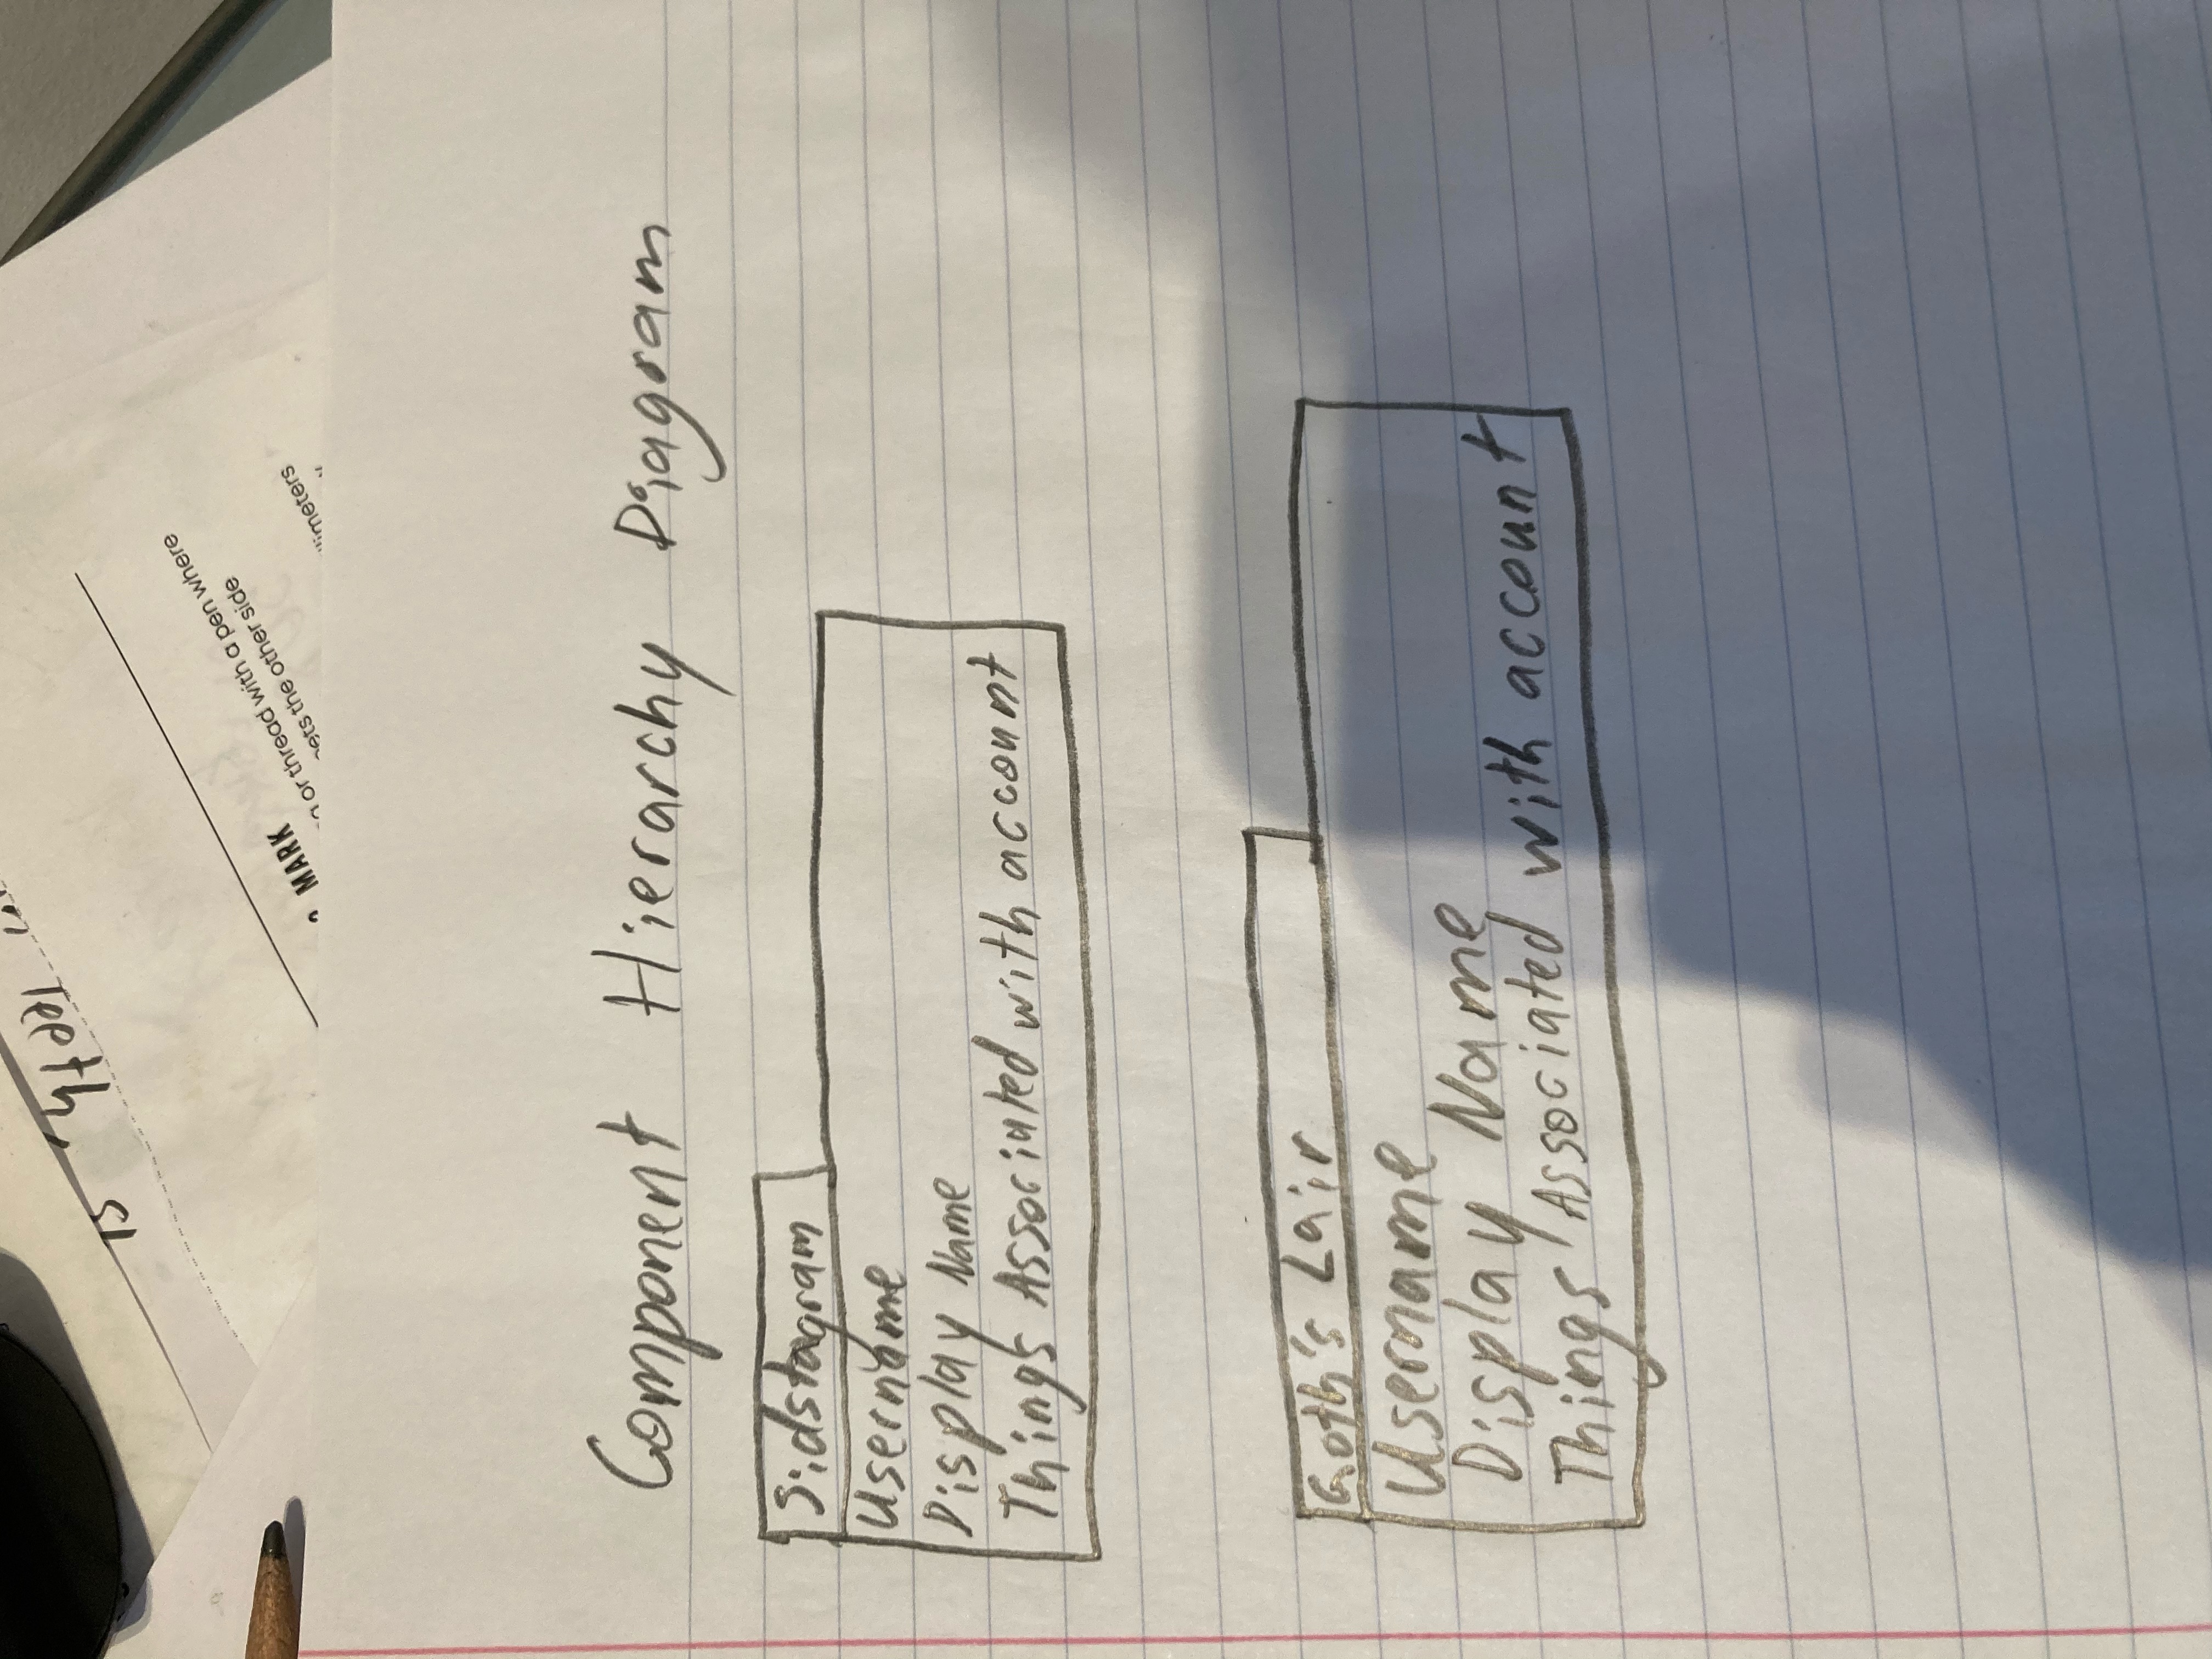 Teeth
is
2 MARK
or thread with a pen where
ets the other side
limeters
Component Hierarchy Diagram
Sidstagram
Username
Display Name
Things Associated with account
Goth's Lair
Username
Display Name
Things Associated with account